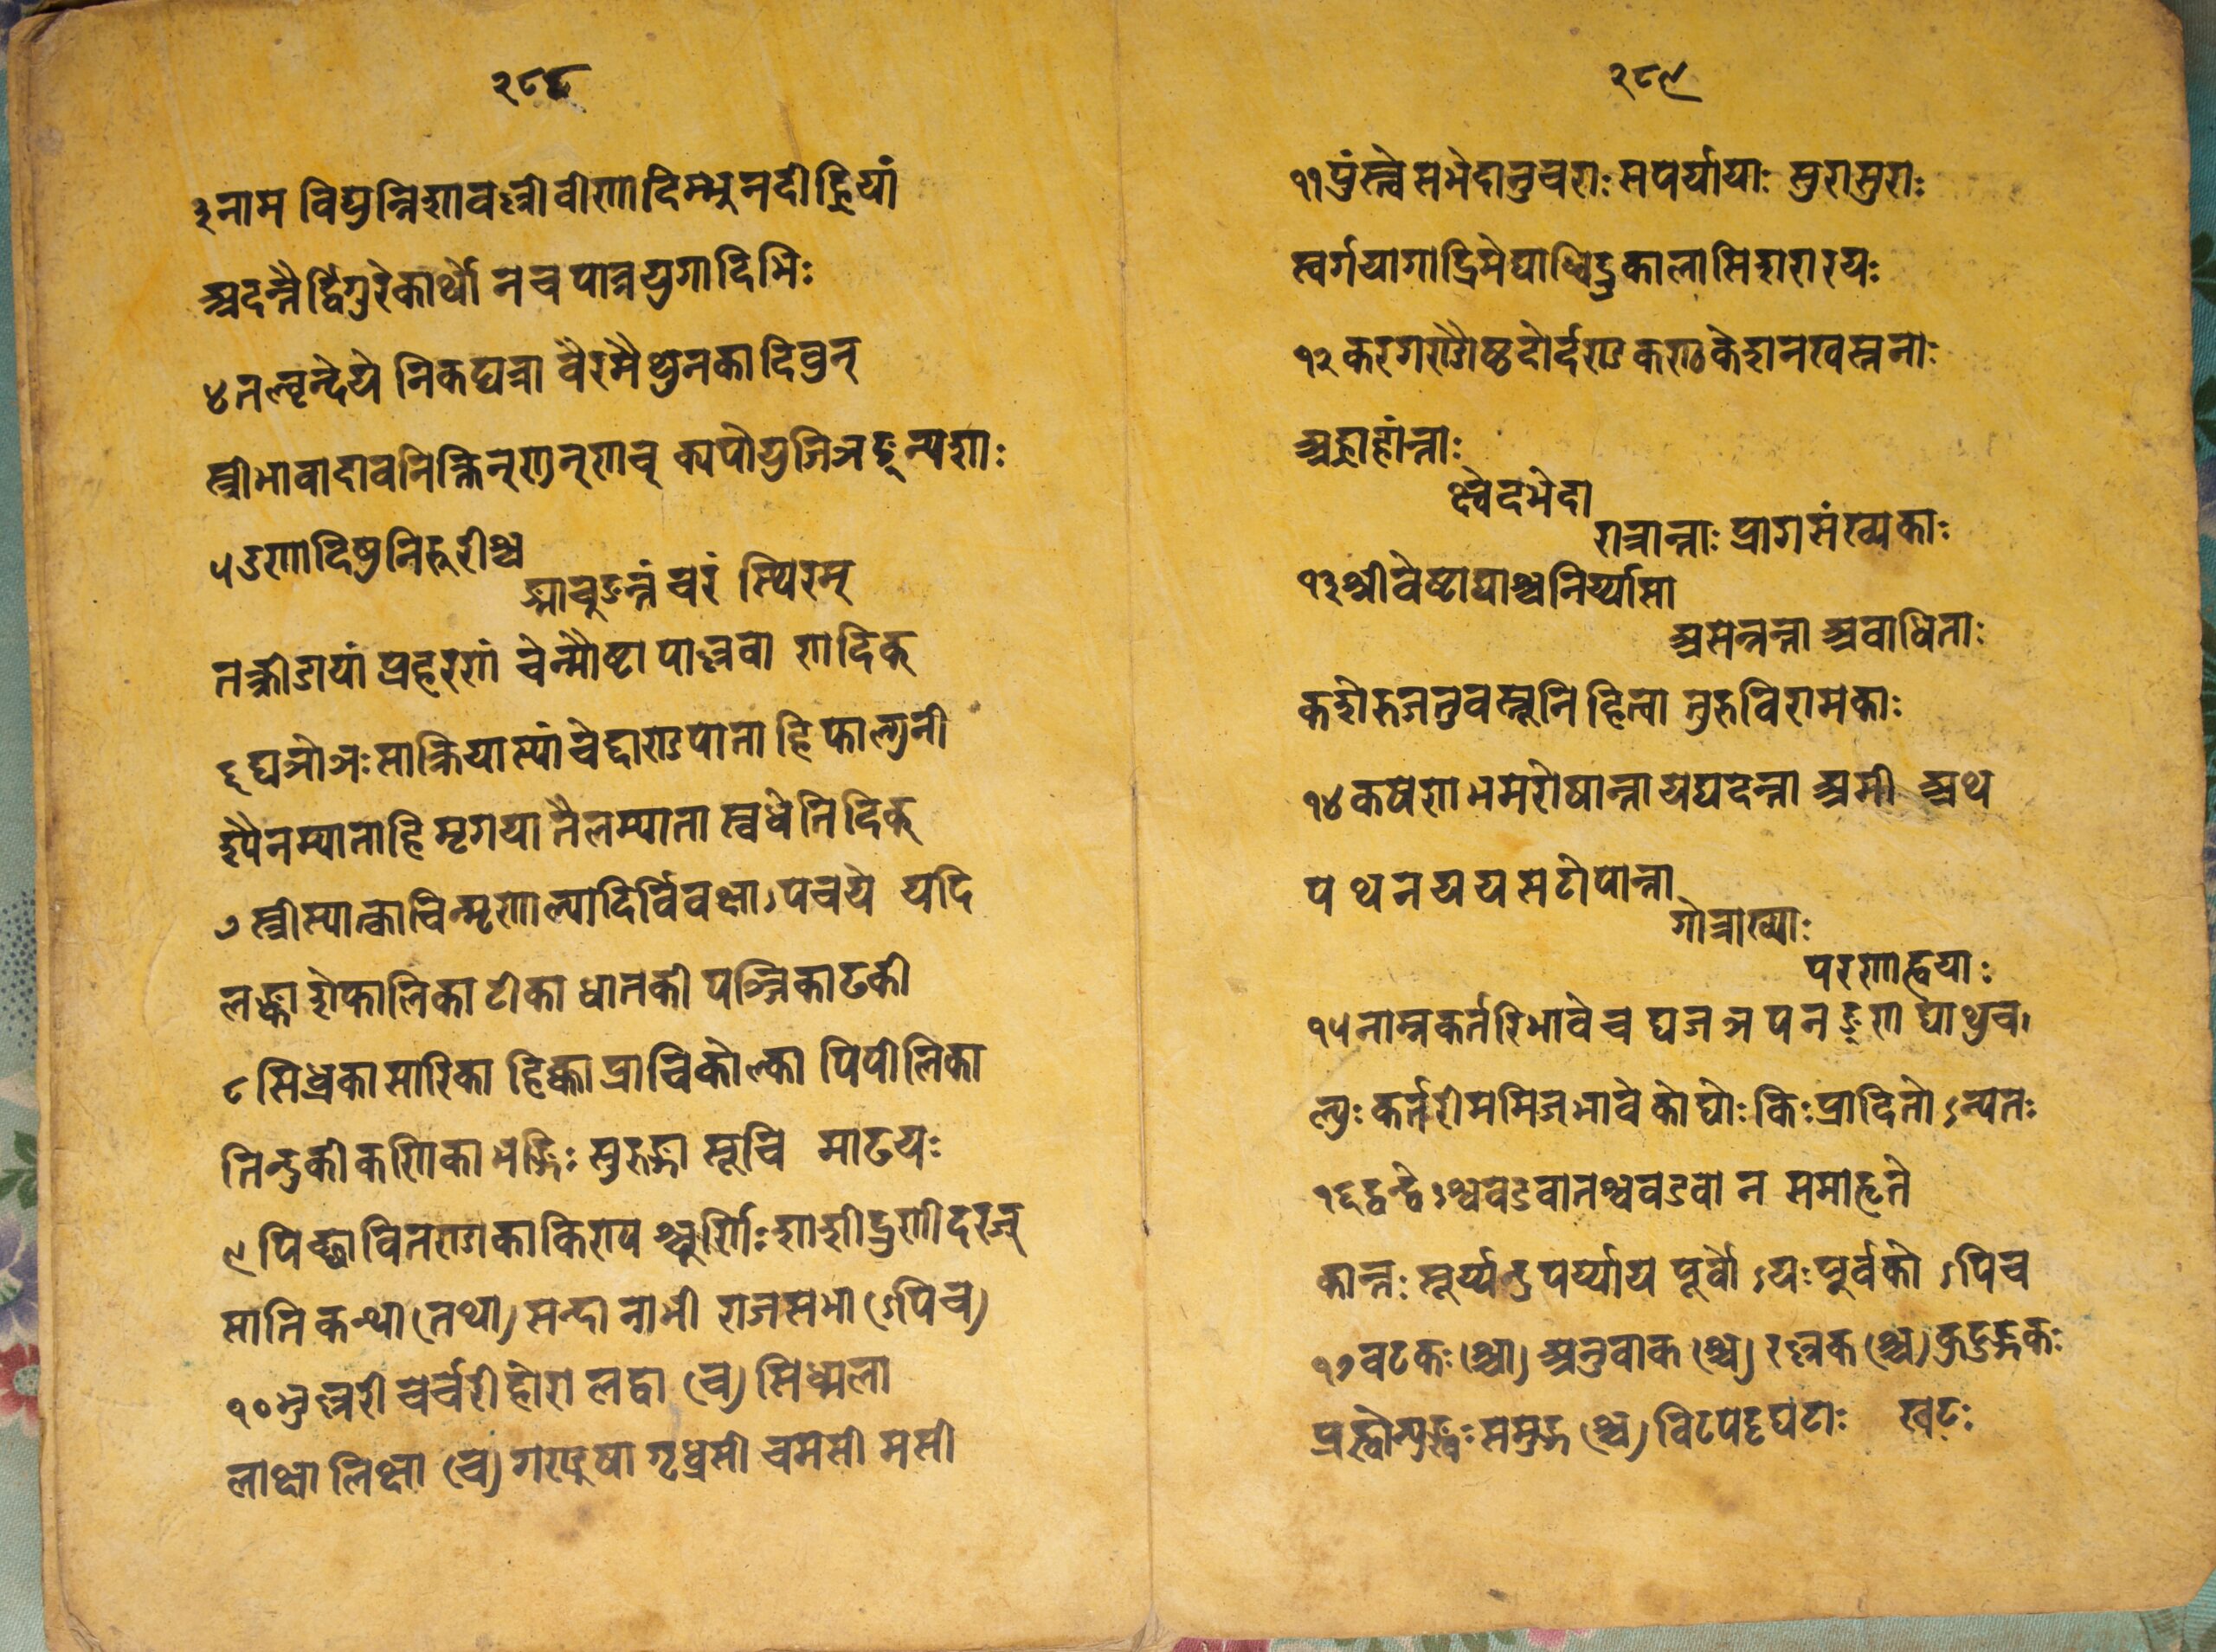 २८८
३ नाम विद्युन्निशावल्लीवीणादिग्भूनदीह्रियां
अदन्तैर्द्विगुरेकार्थो नचपात्रयुगादिभिः
४ तल्वृन्देये निकट्यत्रा वैरमैथुनकादिवुन्
स्त्रीभावादावनिक्तिन्ण्वुन्णच् क्यपौयुजिञङ्न्यशाः
५ उणादिषुनिरूरीश्च
ङ्याबूङन्तं चरं स्थिरम्
तत्क्रीडायां प्रहरणं चेन्मौष्टा पाल्लवा णादिक्
६ घञोञः साक्रियास्यां चेद्दाण्डपाता हि फाल्गुनी
श्यैनम्पाताहि मृगया तैलम्पाता स्वधेतिदिक्
७ स्त्रीस्यात्काचिन्मृणाल्यादिर्विवक्षाऽपचये यदि
लङ्का शेफालिका टीका धातकी पञ्जिकाढकी
८ सिध्रका सारिका हिक्का प्राचिकोल्का पिपीलिका
तिन्दुकी कणिका भङ्गिः सुरुङ्गा सूचि माढयः
९ पिच्छावितण्डाकाकिण्य श्चूर्णिः शाणीद्रुणीदरत्
साति कन्था (तथा) सन्दी नाभी राजसभा (ऽपिच)
१० झल्लरी चर्चरी होरा लट्वा (च) सिध्मला
लाक्षा लिक्षा (च) गण्डूषा गृध्रसी चमसी मसी
२८९
११ पुंस्त्वे सभेदानुचराः सपर्यायाः सुरासुराः
स्वर्गयागाद्रिमेघाब्धिद्रुकालासिशरारयः
१२ करगण्डौष्ठदोर्दण्डकण्ठकेशनखस्तनाः
अह्नाहान्ताः
क्ष्वेदभेदा
रात्रान्ताः प्रागसंख्यकाः
१३ श्रीवेष्टाद्याश्चनिर्य्यासा
असन्नन्ता अबाधिताः
कशेरुजतुवस्तूनि हित्वा तुरुविरामकाः
१४ कषणभमरोपान्ता यद्यदन्ता अमी अथ
प थ न य य सटोपान्ता
गोत्राख्याः
परणाह्वयाः
१५ नाम्न्यकर्तरिभावेच घञजपनङ्णघाथुच।
ल्युः कर्तरीमनिज्भावे कोघोः किः प्रादितोऽन्यतः
१६ द्वन्द्वेऽश्ववडवावश्ववडवा न समाहृते
कान्तः सूर्य्येन्दुपर्य्याय पूर्वोऽयः पूर्वकोऽपिच
१७ वटकः (श्चा) अनुवाक (श्च) रल्लक (श्च) कुडङ्गकः
पुङ्खोन्युङ्खः समुद्ग (श्च) विटपट्टघटाः खटः